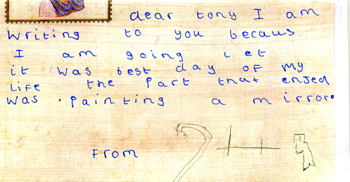 dear tony I am
writing to you becaus
I am going
it was best day of my
Life the part that enjed
was painting a mirror
From